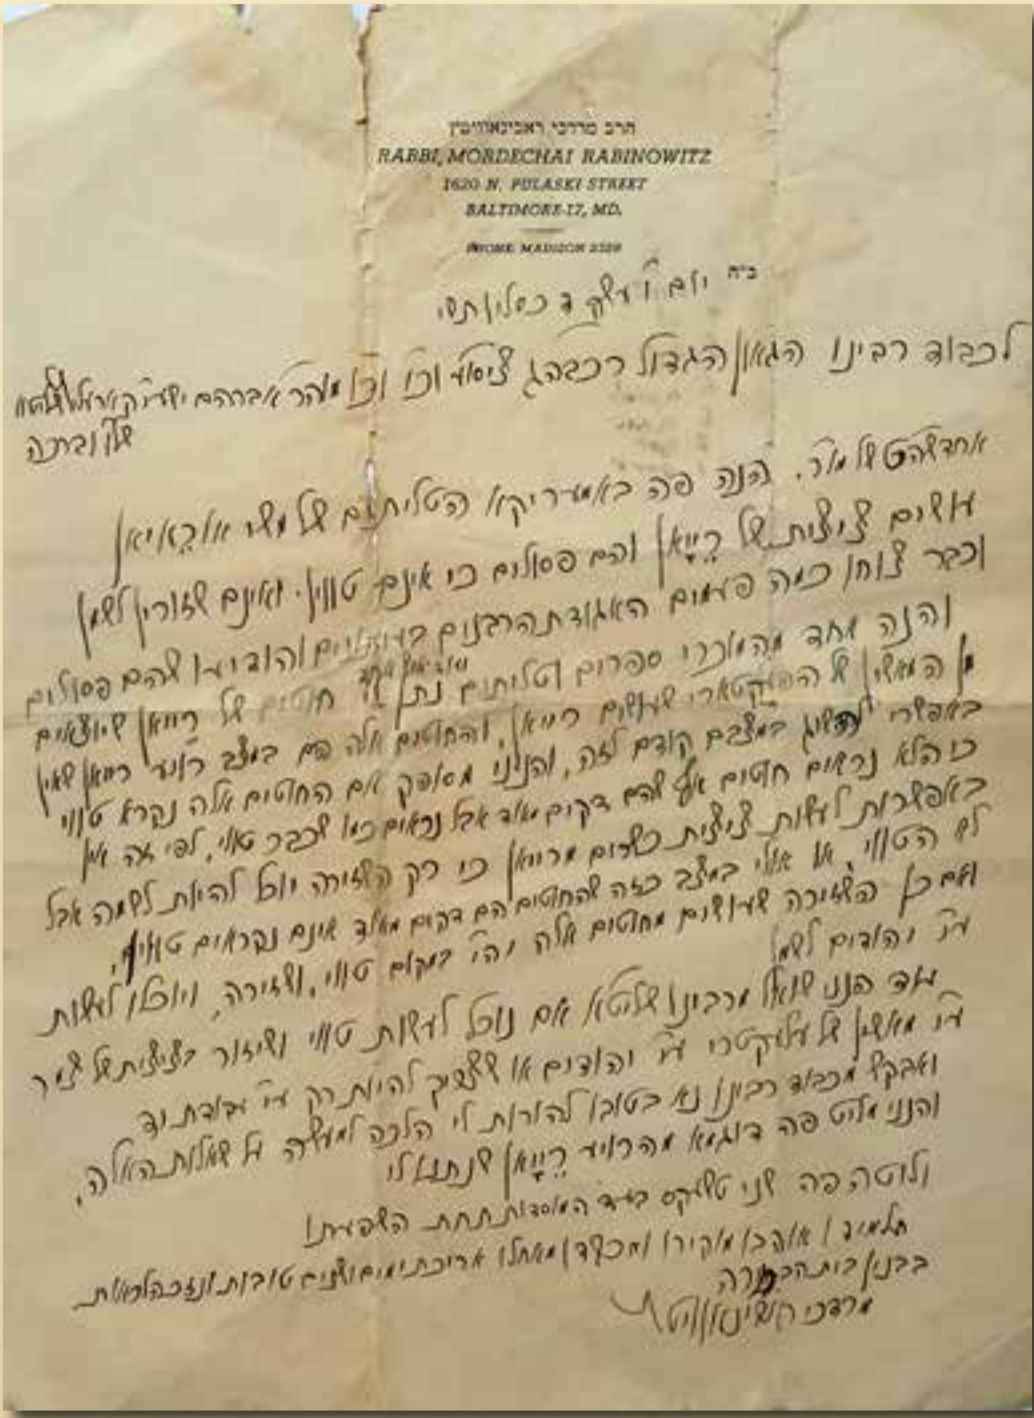 הרב מרדכי ראבינאוויטץ
RABBI, MORDECHAI RABINOWITZ
1620 N. PULASKI STREET
BALTIMORE-17, MD.
PHONE MADISON 2529
ב"ה יום ו' עש"ק ד כסליו תשי
לכבוד רבינו הגאון הגדול רכבהג ציסוע וכו' וכו' מוהר אברהם ישעי'
שלו' וברכה
אחדשה"ט של מר. הנה פה באמעריקא הטליתים של משי
עושים ציצית של רֵייאָן והם פסולים כי אינם טווין. ואינם שזורין לשמן
וכבר צוחו כמה פעמים האגודת הרבנים והודיעו שהם פסולים
והנה אחד ממוכרי ספרים וטליתים נתן חוטים של רייאן שיוצאים
מן המאשין של שעושים רייאן, והחוטים אלה הם במצב רייאן שאין
באפשרי להשיג במצבם קודם לזה, והנני מסופק אם החוטים אלה נקרא טווי
כי הלא נראים חוטים אף שהם דקים מאד אבל נראים כמו שכבר טווי, לפי זה אין
באפשרות לעשות ציצית כשרים מרייאן כי רק השזירה יוכל להיות לשמה אבל
לא הטווי, או אולי במצב כזה שהחוטים הם דקים מאד אינם נקראים טווין,
ואם כן השזירה שעושים מחוטים אלה יהי' במקום טווי, ושזירה, ויוכלו לעשות
ע"י יהודים לשמן
עוד הנני שואל מרבינו שליטא אם נוכל לעשות טווי ושיזור בציצית של צמר
ע"י מאשין של עלעקטרי ע"י יהודים או שצריך להיות רק ע"י עבודת יד
ואבקש מכבוד רבינו נא בטובו להורות לי הלכה למעשה על שאלות האלה,
והנני פה דוגמא מה רייאָן שנתנו לי
ולוטה פה שני טשעקס בעד המוסדות תחת השפעתו
תלמידו אוהבו מוקירו ומכבדו מאחלו אריכת ימים ושנים טובות ונזכה לראות
בבנין בית הבחירה
מרדכי